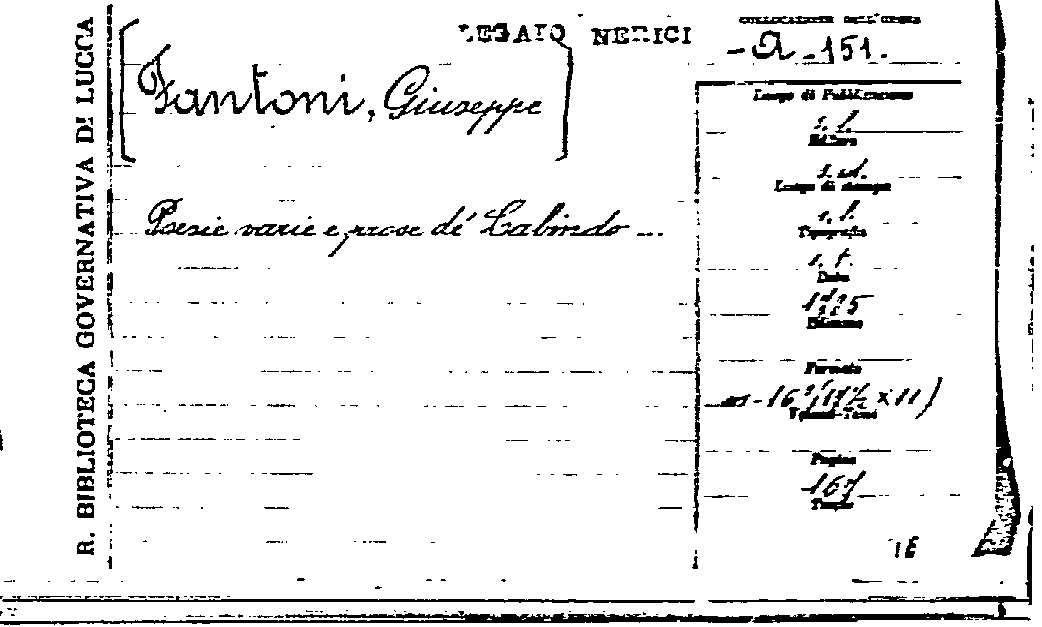 R. BIBLIOTECA GOVERNATIVA DI LUCCA
LEGATO NERICI
COLLOCAZIONE DELL'OPERA
- A - 151.
[Fantoni, Giuseppe]
Poesie varie e prose di Labindo ...
Luogo di Pubblicazione
s. l.
Editore
s. ed.
Luogo di stampa
s. l.
Tipografia
s. t.
Data
Edizione
Formato
in-16° (17½ x 11)
Volumi-Tomi
Pagine
167
Tavole